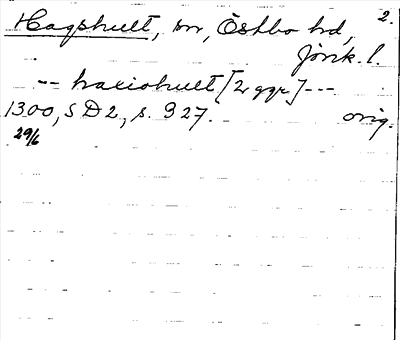 2.
Hagshult, sn, Östbo hd,
Jönk. l.
-- haxiohult [2 ggr] ---
1300, SD2, s. 927. orig.
29/6